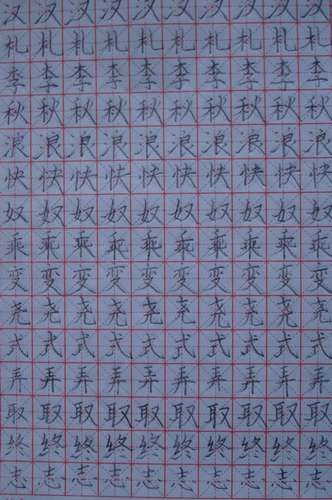 汉汉汉汉汉汉汉汉汉汉
札札札札札札札札札札
李李李李李李李李李李
秋秋秋秋秋秋秋秋秋秋
浪浪浪浪浪浪浪浪浪浪
快快快快快快快快快快
奴奴奴奴奴奴奴奴奴奴
乘乘乘乘乘乘乘乘乘乘
变变变变变变变变变变
尧尧尧尧尧尧尧尧尧尧
式式式式式式式式式式
弄弄弄弄弄弄弄弄弄弄
取取取取取取取取取取
终终终终终终终终终终
志志志志志志志志志志